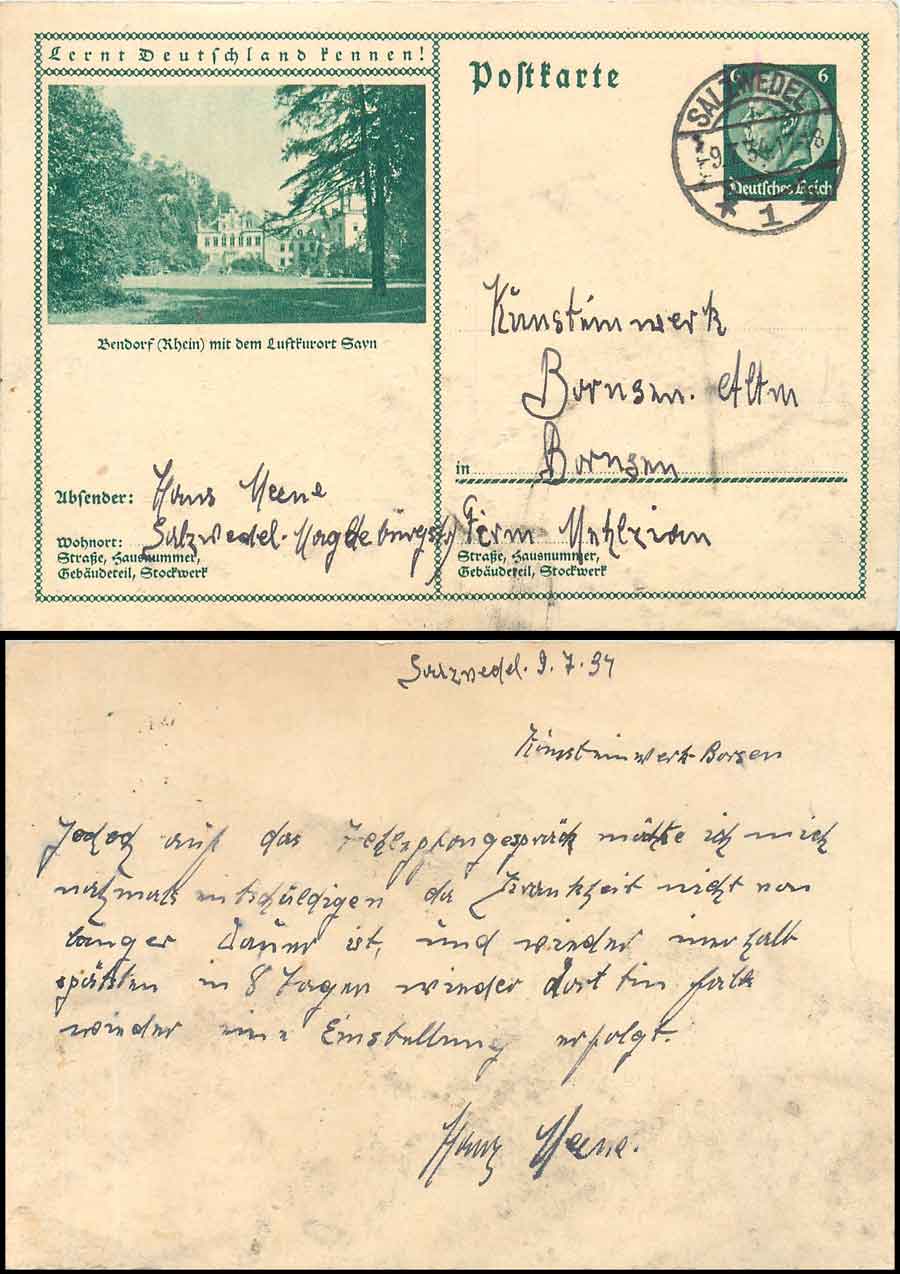 Lernt Deutschland kennen!
Bendorf (Rhein) mit dem Luftkurort Sayn
Absender: Hans Meene
Wohnort: Salzwedel. Magdeburgstr
Straße, Hausnummer,
Gebäudeteil, Stockwerk
Postkarte
6 6
Deutsches Reich
SALZWEDEL
1
Kunsteinwerk
Bornsen. Altm
in Bornsen
Straße, Hausnummer,
Gebäudeteil, Stockwerk
Salzwedel. 9.7.34
Kunsteinwerk Borsen
auf das möchte ich mich
nochmals entschuldigen da Krankheit nicht von
langer Dauer ist, und wieder inerhalb
spätsten in 8 Tagen wieder dort bin falls
wieder eine Einstellung erfolgt.
Hanz Meene.